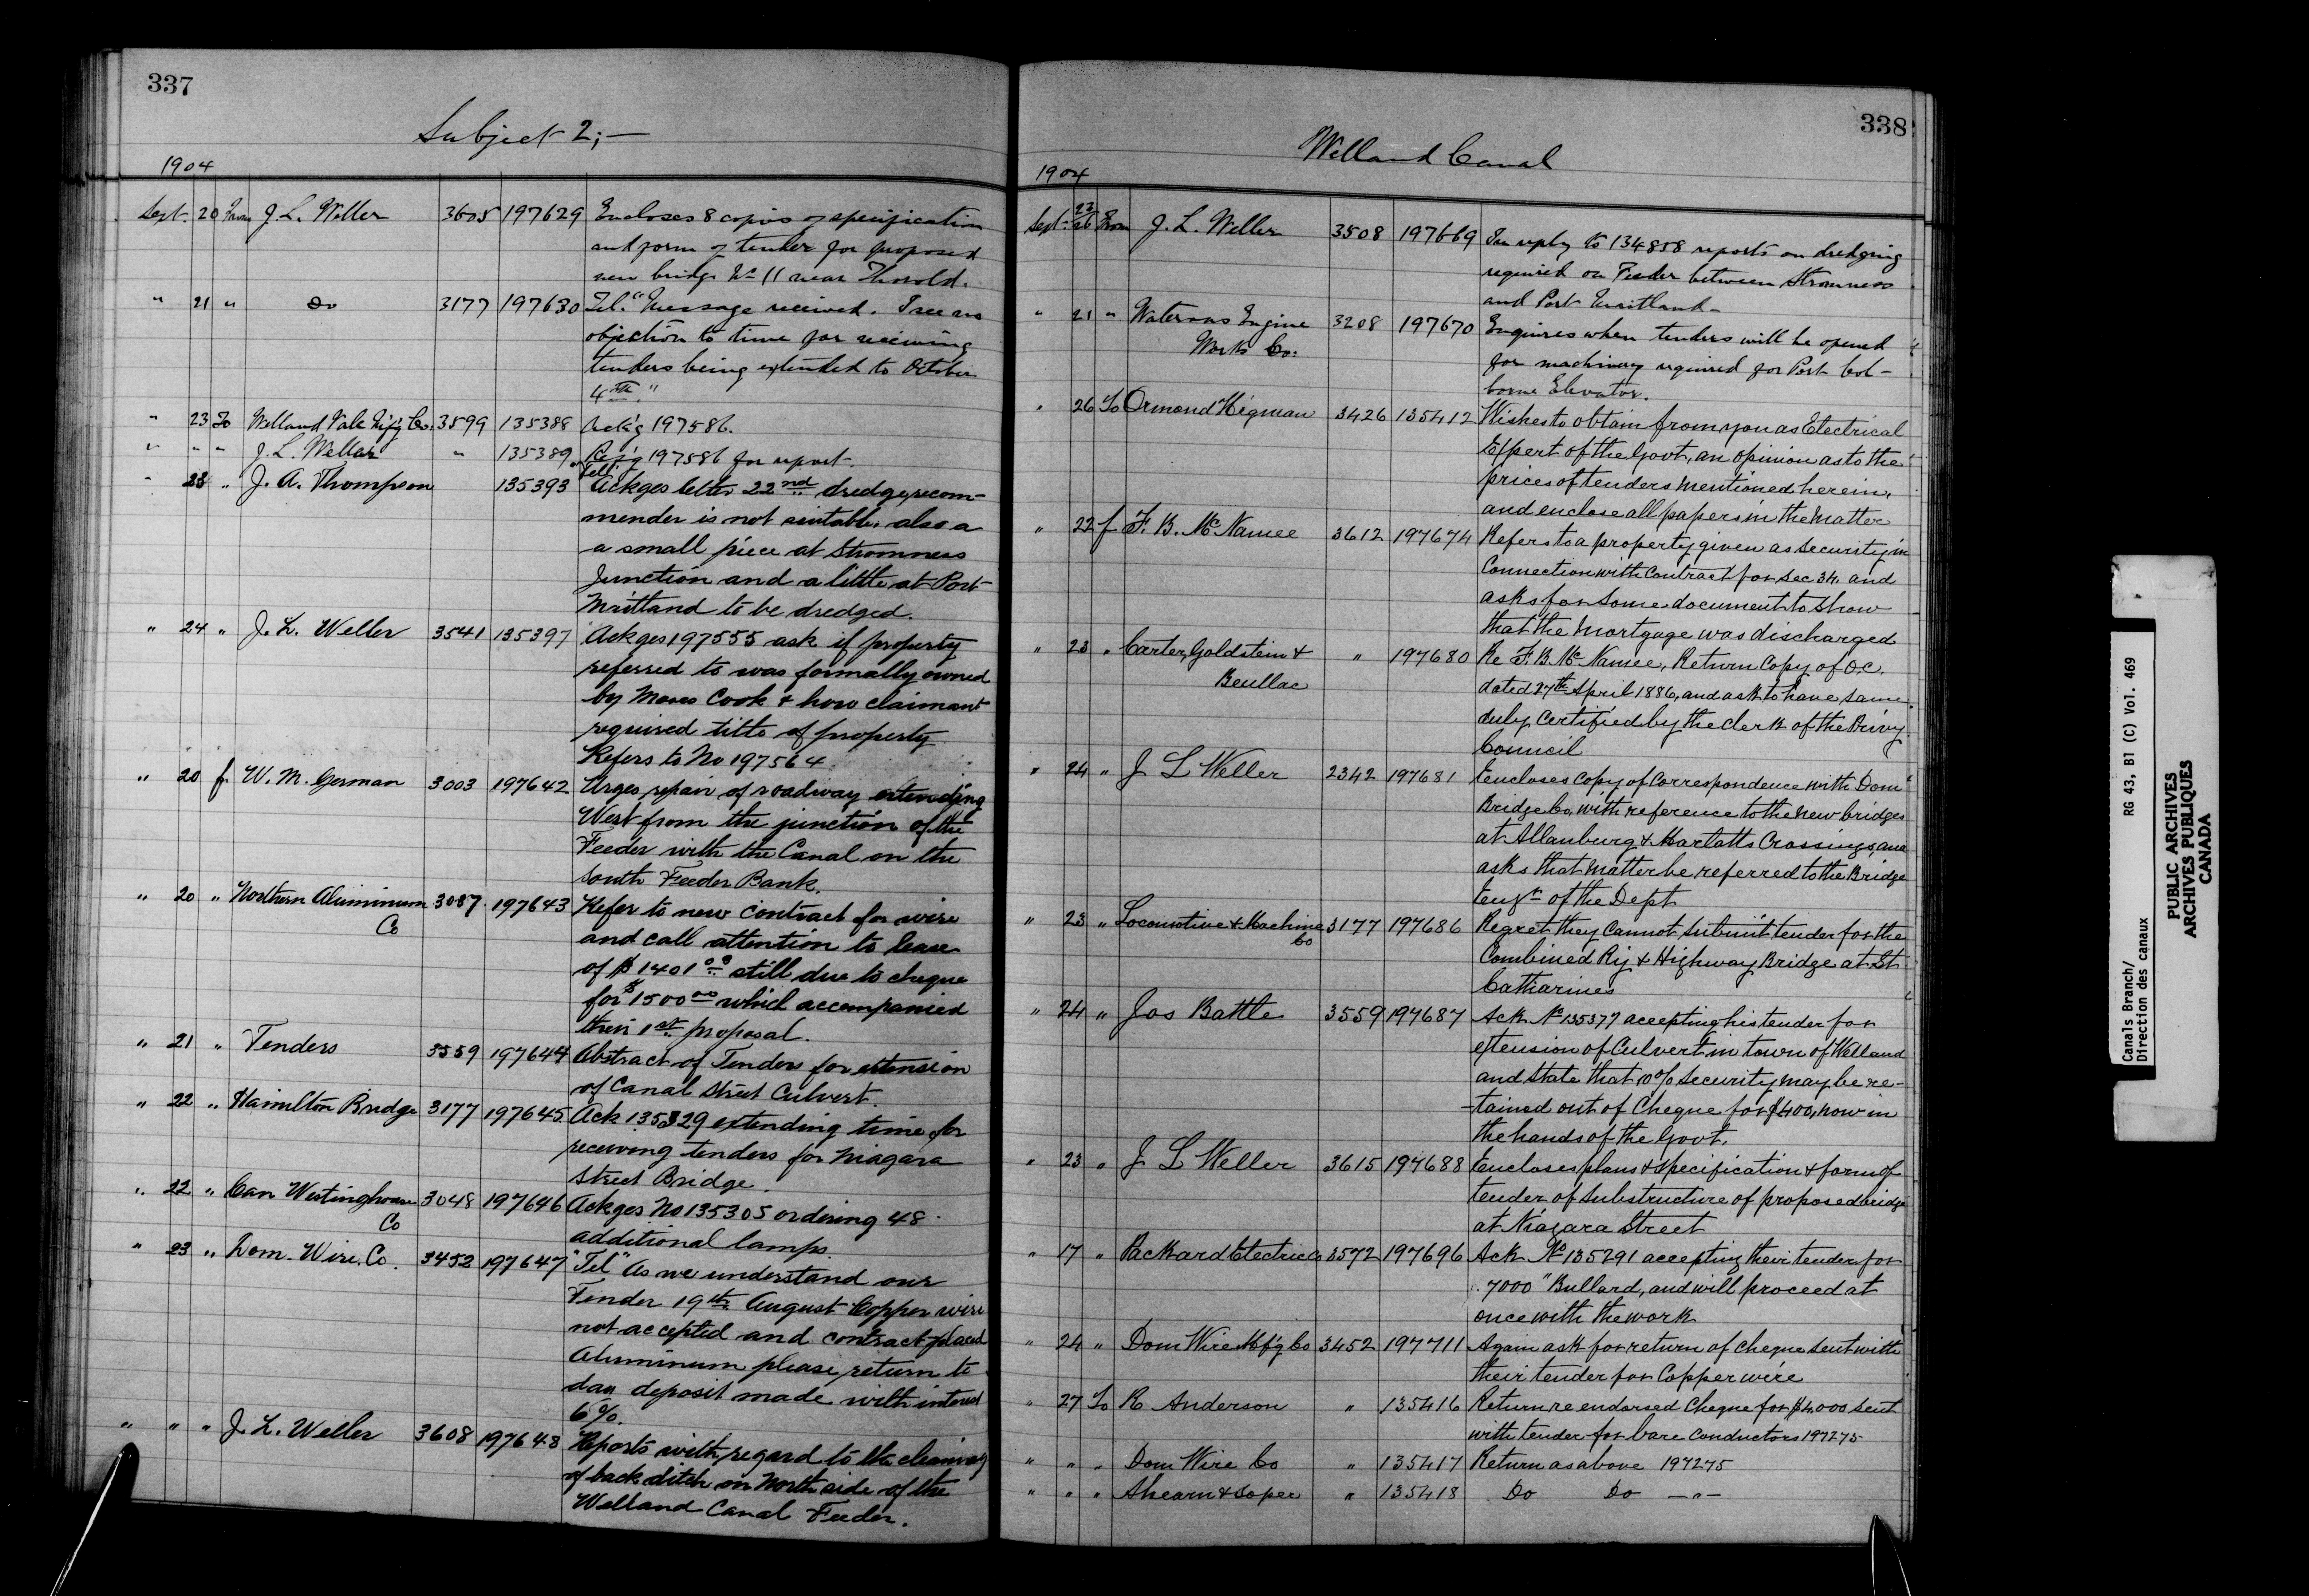 337
Subject 2;—
1904
Sept. 20 From J. L. Weller 3605 197629 Encloses 8 copies of specification
and form of tender for proposed
new bridge No 11 near Thorold.
" 21 " Do 3177 197630 Tel. "Message received. I see no
objection to time for receiving
tenders being extended to October
4th."
" 23 To Welland Vale M'f'g Co. 3599 135388 Ack'g 197586.
" " " J. L. Weller " 135389 Ref'g 197586 for report.
" 23 " J. A. Thompson 135393 "Tel" Ackges letter 22nd dredge recom-
mender is not suitable, also a
a small piece at Stromness
Junction and a little at Port
Maitland to be dredged.
" 24 " J. L. Weller 3541 135397 Ackges 197555 ask if property
referred to was formally owned
by Moses Cook & how claimant
required title of property
Refers to No 197564.
" 20 f W. M. German 3003 197642 Urges repair of roadway extending
West from the junction of the
Feeder with the Canal on the
South Feeder Bank.
" 20 " Northern Aluminum
Co 3087 197643 Refer to new contract for wire
and call attention to lease
of $1401.00 still due to cheque
for $1500.00 which accompanied
their 1st proposal.
" 21 " Tenders 3559 197644 Abstract of Tenders for extension
of Canal Street Culvert.
" 22 " Hamilton Bridge 3177 197645 Ack 135329 extending time for
receiving tenders for Niagara
Street Bridge.
" 22 " Can Westinghouse
Co 3048 197646 Ackges No 135305 ordering 48
additional lamps.
" 23 " Dom. Wire. Co. 3452 197647 "Tel" As we understand our
Tender 19th August Copper wire
not accepted and contract placed
Aluminum please return to
day deposit made with interest
6%.
" " " J. L. Weller 3608 197648 Reports with regard to the cleaning
of back ditch on North side of the
Welland Canal Feeder.
338
Welland Canal
1904
Sept. 23/26 From J. L. Weller 3508 197669 In reply to 134858 reports on dredging
required on Feeder between Stromness
and Port Maitland—
" 21 " Waterous Engine
Works Co. 3208 197670 Enquires when tenders will be opened
for machinery required for Port Col-
borne Elevator.
" 26 To Ormond Higman 3426 135412 Wishes to obtain from you as Electrical
Expert of the Govt, an opinion as to the
prices of tenders mentioned herein,
and enclose all papers in the matter
" 22 f F. B. McNamee 3612 197674 Refers to a property given as security in
Connection with Contract for Sec 34, and
asks for some document to show
that the mortgage was discharged
" 23 " Carter, Goldstein &
Beullac " 197680 Re F. B. McNamee, Return Copy of O.C.
dated 27th April 1886, and ask to have same
duly certified by the clerk of the Privy
Council
" 24 " J L Weller 2342 197681 Encloses Copy of Correspondence with Dom
Bridge Co, with reference to the new bridges
at Allanburg & Marlatts Crossings, and
asks that matter be referred to the Bridge
Eng'r of the Dept
" 23 " Locomotive & Machine
Co 3177 197686 Regret they cannot submit tender for the
Combined Ry & Highway Bridge at St
Catharines
" 24 " Jos Battle 3559 197687 Ack No 135377 accepting his tender for
extension of Culvert in town of Welland
and state that 10% security may be re-
-tained out of Cheque for $400, now in
the hands of the Govt.
" 23 " J L Weller 3615 197688 Encloses plans & specification & form of
tender of substructure of proposed bridge
at Niagara Street
" 17 " Packard Electric Co 3572 197696 Ack No 135291 accepting their tender for
7000" Bullard, and will proceed at
once with the work
" 24 " Dom Wire Mf'g Co 3452 197711 Again ask for return of Cheque sent with
their tender for Copper wire
" 27 To R Anderson " 135416 Return re endorsed Cheque for $4,000 sent
with tender for bare Conductors 197275
" " " Dom Wire Co " 135417 Return as above 197275
" " " Ahearn & Soper " 135418 Do Do —"—
Canals Branch/ RG 43, B1 (C) Vol. 469
Direction des canaux
PUBLIC ARCHIVES
ARCHIVES PUBLIQUES
CANADA